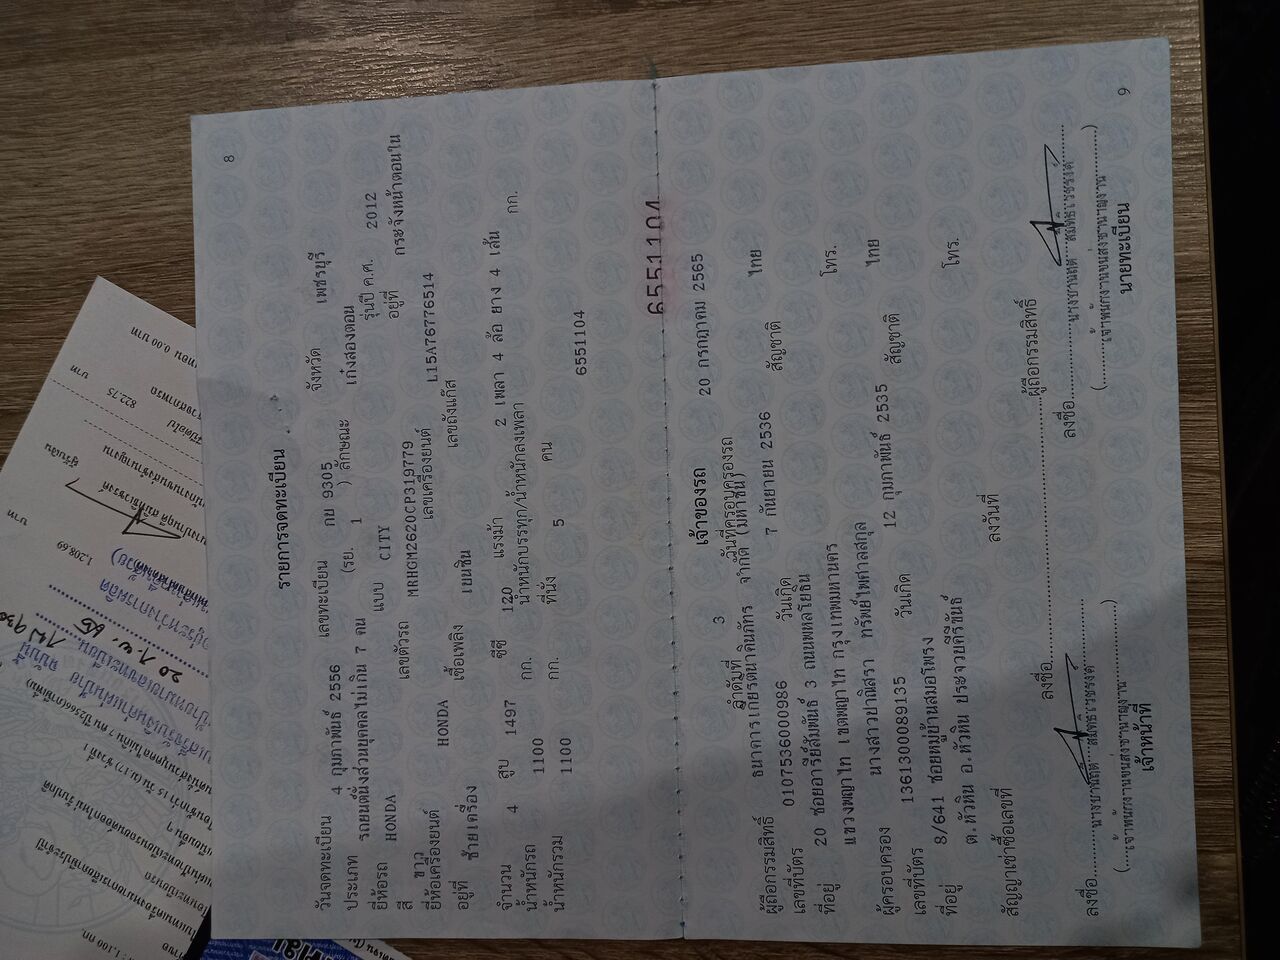 8
รายการจดทะเบียน
วันจดทะเบียน 4 กุมภาพันธ์ 2556 เลขทะเบียน กบ 9305 จังหวัด เพชรบุรี
ประเภท รถยนต์นั่งส่วนบุคคลไม่เกิน 7 คน (รย. 1 ) ลักษณะ เก๋งสองตอน
ยี่ห้อรถ HONDA แบบ CITY รุ่นปี ค.ศ. 2012
สี ขาว เลขตัวรถ MRHGM2620CP319779 อยู่ที่ กระจังหน้าตอนใน
ยี่ห้อเครื่องยนต์ HONDA เลขเครื่องยนต์ L15A76776514
อยู่ที่ ซ้ายเครื่อง เชื้อเพลิง เบนซิน เลขถังแก๊ส
จำนวน 4 สูบ 1497 ซีซี 120 แรงม้า 2 เพลา 4 ล้อ ยาง 4 เส้น
น้ำหนักรถ 1100 กก. น้ำหนักบรรทุก/น้ำหนักลงเพลา กก.
น้ำหนักรวม 1100 กก. ที่นั่ง 5 คน
6551104
6551104
เจ้าของรถ
ลำดับที่ 3 วันที่ครอบครองรถ 20 กรกฎาคม 2565
ผู้ถือกรรมสิทธิ์ ธนาคารเกียรตินาคินภัทร จำกัด (มหาชน)
เลขที่บัตร 0107536000986 วันเกิด 7 กันยายน 2536 สัญชาติ ไทย
ที่อยู่ 20 ซอยอารีย์สัมพันธ์ 3 ถนนพหลโยธิน
แขวงพญาไท เขตพญาไท กรุงเทพมหานคร โทร.
ผู้ครอบครอง นางสาวปาณิสรา ทรัพย์ไพศาลสกุล
เลขที่บัตร 1361300089135 วันเกิด 12 กุมภาพันธ์ 2535 สัญชาติ ไทย
ที่อยู่ 8/641 ซอยหมู่บ้านสมอโพรง
ต.หัวหิน อ.หัวหิน ประจวบคีรีขันธ์ โทร.
สัญญาเช่าซื้อเลขที่ ลงวันที่
ลงชื่อ ผู้ถือกรรมสิทธิ์
ลงชื่อ
(เจ้าพนักงานขนส่งชำนาญงาน)
เจ้าหน้าที่
ลงชื่อ
(เจ้าพนักงานขนส่งชำนาญงาน)
นายทะเบียน
9
0.00 บาท
822.75 บาท
1,208.69 บาท
20 ก.ค. 65